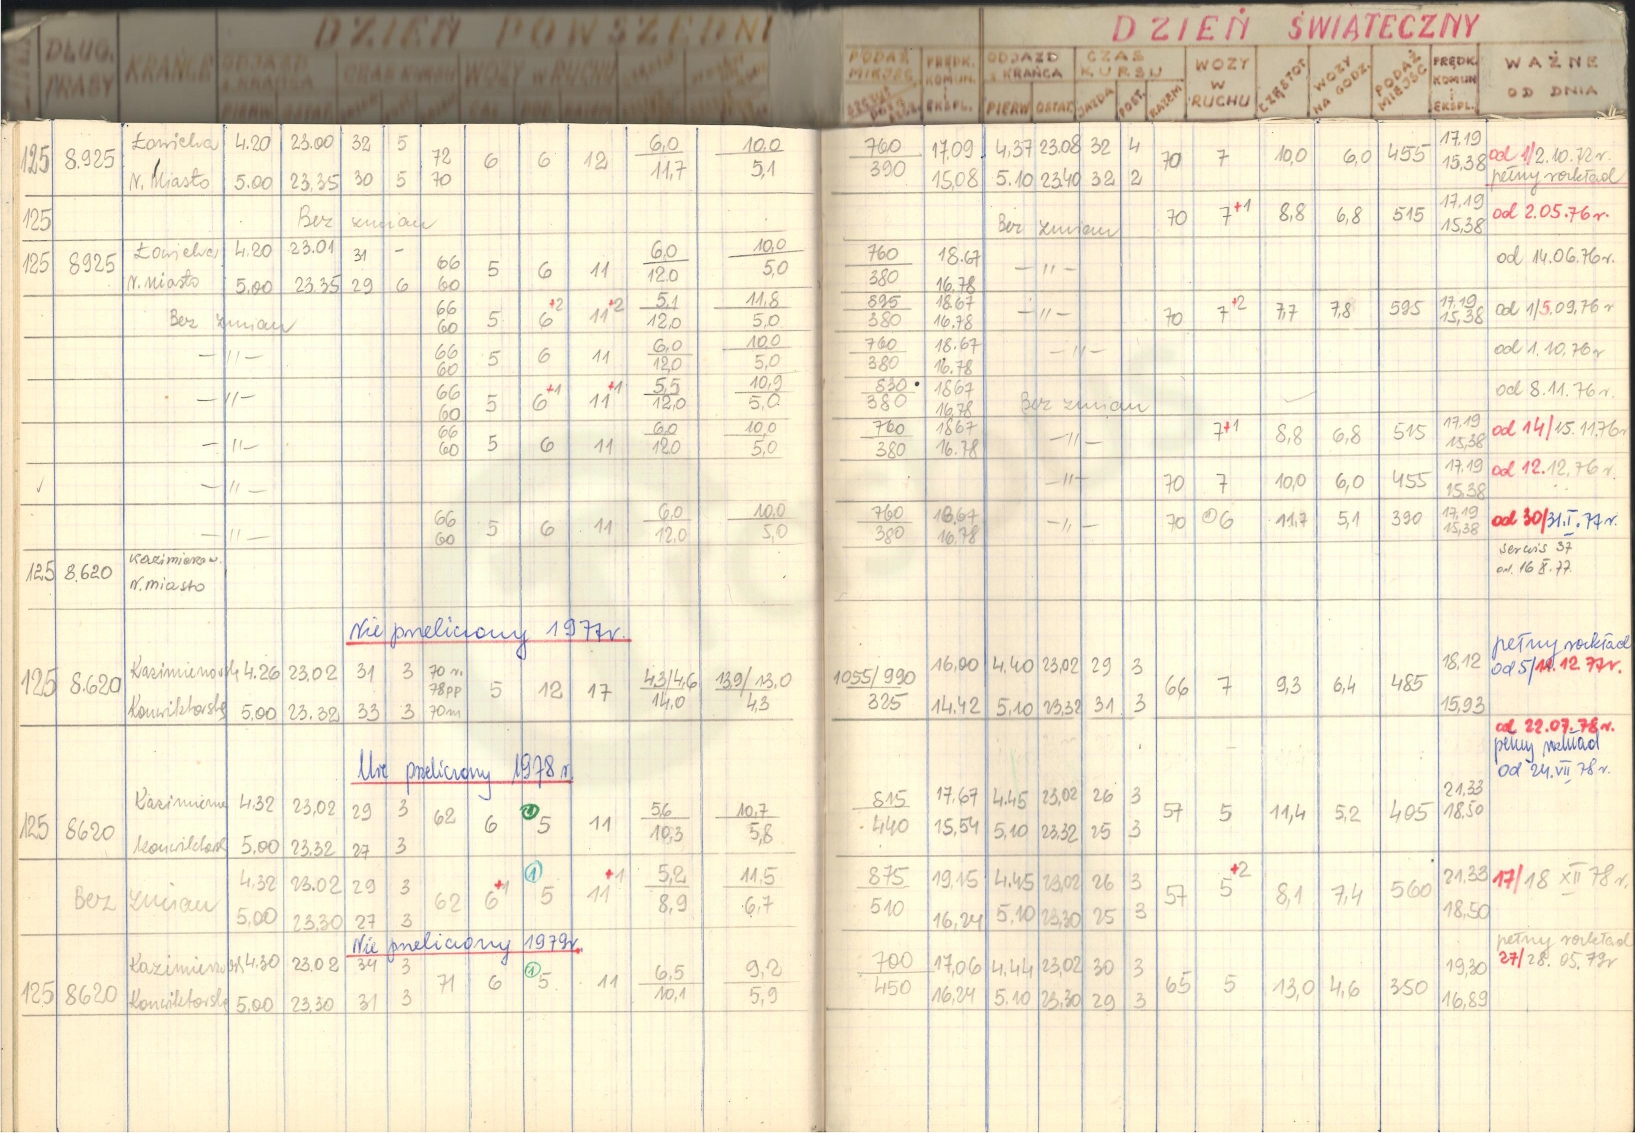 DZIEŃ POWSZEDNI DZIEŃ ŚWIĄTECZNY
DŁUG. TRASY KRAŃCE ODJAZD Z KRAŃCA CZAS KURSU WOZY w RUCHU
PODAŻ MIEJSC PRĘDK. KOMUN. i EKSPL. ODJAZD z KRAŃCA PIERW. OSTAT. CZAS KURSU JAZDA POST. RAZEM WOZY W RUCHU CZĘSTOT. WOZY NA GODZ. PODAŻ MIEJSC PRĘDK. KOMUN. i EKSPL. WAŻNE OD DNIA
125 8.925 Łowicka 4.20 23.00 32 5 72 6 6 12 6,0 10,0 760 17,09 4.37 23.08 32 4 70 7 10,0 6,0 455 17.19 od 1/2.10.72r.
N. Miasto 5.00 23.35 30 5 70 11,7 5,1 390 15,08 5.10 23.40 32 2 15,38 pełny rozkład
125 Bez zmian Bez zmian 70 7+1 8,8 6,8 515 17.19 15,38 od 2.05.76r.
125 8925 Łowicka 4.20 23.01 31 - 66 5 6 11 6,0 10,0 760 18.67 -"- od 14.06.76r.
N. Miasto 5.00 23.35 29 6 60 12,0 5,0 380 16.78
Bez zmian 66 5 6+2 11+2 5,1 11,8 895 18.67 -"- 70 7+2 7,7 7,8 595 17,19 od 1/5.09.76r
60 12,0 5,0 380 16.78 15,38
-"- 66 5 6 11 6,0 10,0 760 18.67 -"- od 1.10.76r
60 12,0 5,0 380 16.78
-"- 66 5 6+1 11+1 5,5 10,9 830 1867 Bez zmian od 8.11.76r.
60 12,0 5,0 380 16,78
-"- 66 5 6 11 6,0 10,0 760 1867 -"- 7+1 8,8 6,8 515 17.19 od 14/15.11.76r
60 12,0 5,0 380 16.78 15,38
-"- -"- 70 7 10,0 6,0 455 17.19 15.38 od 12.12.76r.
-"- 66 5 6 11 6,0 10,0 760 18.67 -"- 70 6 11,7 5,1 390 17,19 od 30/31.I.77r.
60 12,0 5,0 380 16.78 15,38
125 8.620 Kazimierzow. serwis 37
N. Miasto od 16 X.77.
Nie przeliczony 1977r.
125 8.620 Kazimierowsk 4.26 23.02 31 3 70 r. 78pp 5 12 17 4,3/4,6 13,9/13,0 1055/990 16,00 4.40 23,02 29 3 66 7 9,3 6,4 485 18,12 pełny rozkład od 5/11.12.77r.
Konwiktorską 5,00 23.32 33 3 70m 14,0 4,3 325 14.42 5.10 23,32 31 3 15,93
od 22.07.78r.
Nie przeliczony 1978 r. pełny rozkład od 24.VII 78r.
125 8620 Kazimierow 4.32 23,02 29 3 62 6 5 11 5,6 10,7 815 17,67 4.45 23,02 26 3 57 5 11,4 5,2 405 21,33
Konwiktorsk 5.00 23.32 27 3 10,3 5,8 440 15,54 5,10 23,32 25 3 18,50
Bez zmian 4.32 23.02 29 3 62 6+1 ① 5 11+1 5,2 11,5 875 19,15 4.45 23,02 26 3 57 5+2 8,1 7,4 560 21,33 17/18 XII 78r.
5,00 23,30 27 3 8,9 6,7 510 16,24 5,10 23,30 25 3 18,50
Nie przeliczony 1979r. pełny rozkład
125 8620 Kazimierowsk 4.30 23.02 34 3 71 6 ① 5 11 6,5 9,2 700 17,06 4.44 23,02 30 3 65 5 13,0 4,6 350 19,30 27/28.05.79r
Konwiktorską 5,00 23.30 31 3 10,1 5,9 450 16,24 5.10 23,30 29 3 16,89